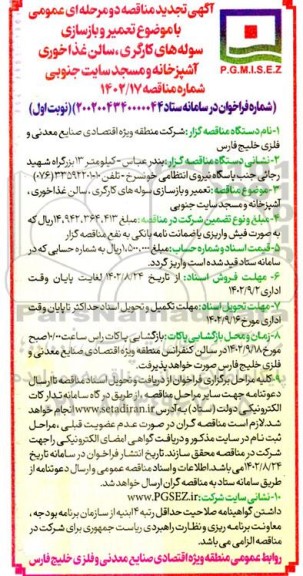 آگهی تجدید مناقصه دو مرحله ای عمومی
با موضوع تعمیر و بازسازی
سوله های کارگری، سالن غذاخوری
آشپزخانه و مسجد سایت جنوبی
شماره مناقصه ۱۴۰۲/۱۷
P.G.M.I.S.E.Z
(شماره فراخوان در سامانه ستاد ۲۰۰۲۰۰۴۳۴۰۰۰۰۰۴۴) (نوبت اول)
۱-نام دستگاه مناقصه گزار: شرکت منطقه ویژه اقتصادی صنایع معدنی و
فلزی خلیج فارس
۲-نشانی دستگاه مناقصه گزار: بندرعباس - کیلومتر ۱۳ بزرگراه شهید
رجائی جنب پاسگاه نیروی انتظامی خونسرخ - تلفن: ۱۰-۳۳۵۹۲۲۰۱ (۰۷۶)
۳-موضوع مناقصه: تعمیر و بازسازی سوله های کارگری، سالن غذاخوری،
آشپزخانه و مسجد سایت جنوبی
۴-مبلغ و نوع تضمین شرکت در مناقصه: مبلغ ۱۴,۹۴۲,۳۶۴,۴۱۳ ریال که
به صورت فیش واریزی یا ضمانت نامه بانکی به نفع مناقصه گزار
۵-قیمت اسناد و شماره حساب: مبلغ ۱,۵۰۰,۰۰۰ ریال به شماره حسابی که در
سامانه ستاد قید شده است واریز گردد.
۶- مهلت فروش اسناد: از تاریخ ۱۴۰۲/۸/۲۴ لغایت پایان وقت
اداری ۱۴۰۲/۹/۲
۷-مهلت تحویل اسناد: مهلت تکمیل و تحویل اسناد حداکثر تا پایان وقت
اداری مورخ ۱۴۰۲/۹/۱۶
۸-زمان و محل بازگشایی پاکات: بازگشایی پاکات راس ساعت ۱۰:۰۰ صبح
مورخ ۱۴۰۲/۹/۱۸ در سالن کنفرانس منطقه ویژه اقتصادی صنایع معدنی و
فلزی خلیج فارس صورت خواهد پذیرفت.
۹-کلیه مراحل برگزاری فراخوان از دریافت و تحویل اسناد مناقصه تا ارسال
دعوتنامه جهت سایر مراحل مناقصه، از طریق درگاه سامانه تدارکات
الکترونیکی دولت (ستاد) به آدرس www.setadiran.ir انجام خواهد
شد. لازم است مناقصه گران در صورت عدم عضویت قبلی، مراحل
ثبت نام در سایت مذکور و دریافت گواهی امضای الکترونیکی را جهت
شرکت در مناقصه محقق سازند. تاریخ انتشار فراخوان در سامانه تاریخ
۱۴۰۲/۸/۲۴ می باشد. اطلاعات و اسناد مناقصه عمومی و ارسال دعوتنامه از
طریق سامانه ستاد به مناقصه گران ارسال خواهد شد.
۱۰-نشانی سایت شرکت: www.PGSEZ.ir
داشتن گواهینامه صلاحیت حداقل رتبه ۴ ابنیه از سازمان برنامه بودجه،
معاونت برنامه ریزی و نظارت راهبردی ریاست جمهوری برای شرکت در
مناقصه الزامی می باشد.
روابط عمومی منطقه ویژه اقتصادی صنایع معدنی و فلزی خلیج فارس